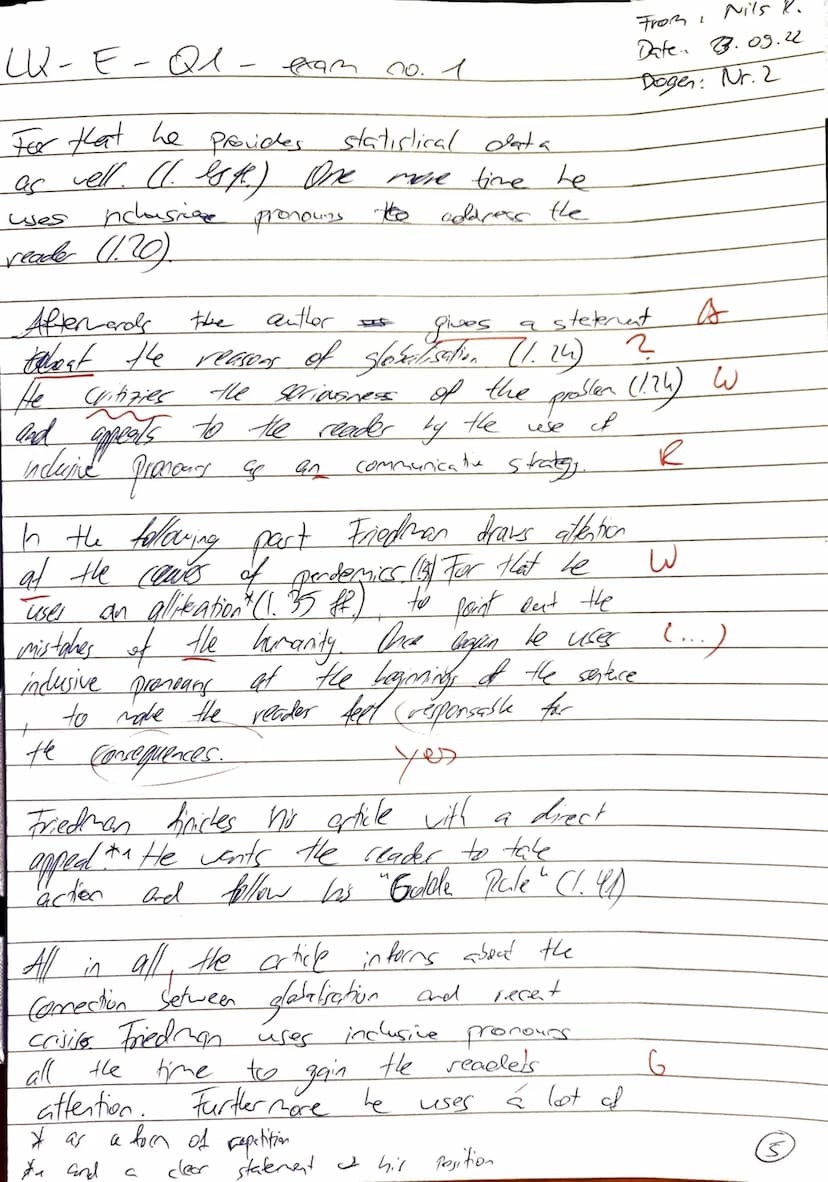 From: Nils K.
Date: .09.22
Bogen: Nr. 2
LK - E - Q1 - exam no. 1
For that he provides statistical data
as well. (l. ff.) One more time he
uses inclusive pronouns to address the
reader (l.20).
Afterwards the author gives a statement A
about the reasons of globalisation (l. 24) ?
He critizies the seriousness of the problem (l.24) W
and appeals to the reader by the use of
inclusive pronouns as an communicative strategy. R
In the following part Friedman draws attention
at the causes of pandemics. For that he W
uses an alliteration* (l. 35 ff.), to point out the
mistakes of the humanity. Once again he uses (...)
inclusive pronouns at the beginning of the sentence
, to make the reader feel responsable for
the consequences. yes
Friedman finishes his article with a direct
appeal.*1 He wants the reader to take
action and follow his "Golden Rule" (l. 41)
All in all, the article informs about the
connection between globalisation and recent
crisis. Friedman uses inclusive pronouns
all the time to gain the readers G
attention. Furthermore he uses a lot of
* as a form of repetition
*1 and a clear statement of his position
5